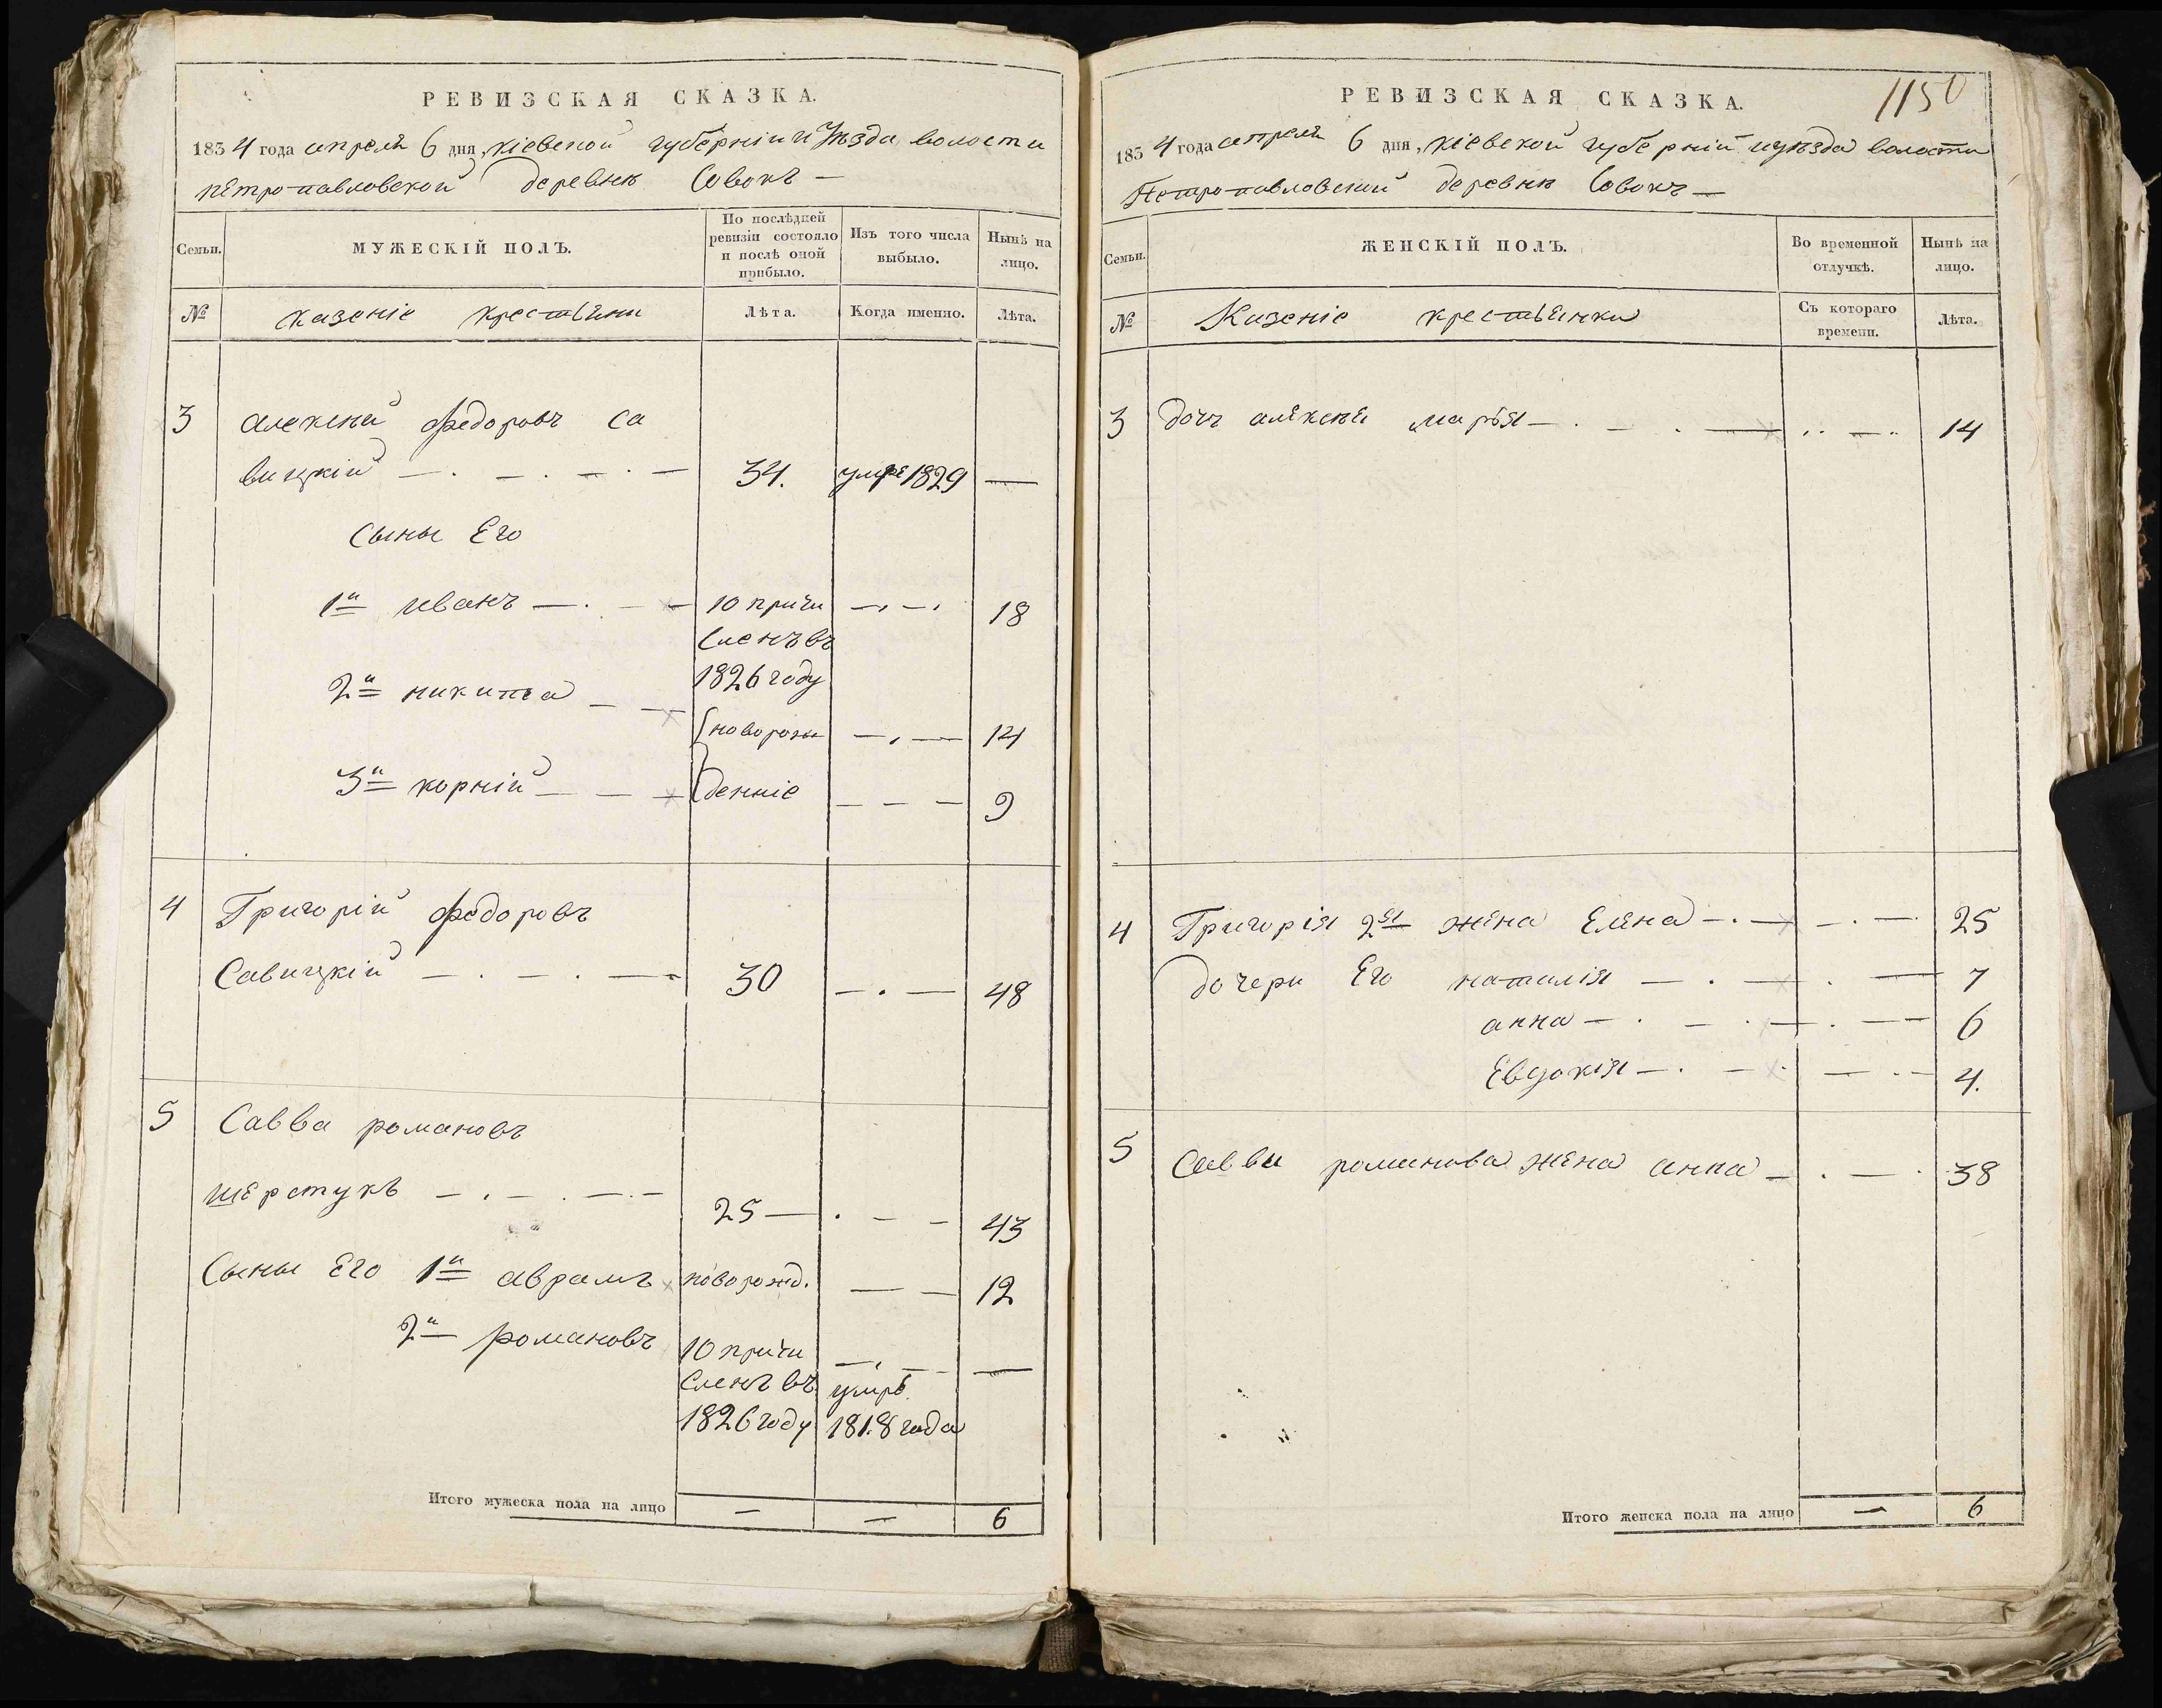 РЕВИЗСКАЯ СКАЗКА.
1834 года апреля 6 дня, кіевской губерніи и уѣзда, волости
петро-павловской деревнѣ Совокъ —
Семьи.
МУЖЕСКІЙ ПОЛЪ.
По послѣдней
ревизіи состояло
и послѣ оной
прибыло.
Изъ того числа
выбыло.
Нынѣ на
лицо.
№ казеніе крестьяни Лѣта. Когда именно. Лѣта.
3 алексѣй федоровъ са
вицкій — 34. умре 1829 —
сыны Его
1й иванъ — 10 причи — 18
сленъ въ
2й никита — 1826 году
новорож — 14
3й корній — денніе — 9
4 Григорій федоровъ
Савицкій — 30 — 48
5 Савва романовъ
шерстукъ — 25 — 43
Сыны Его 1й аврамъ новорожд. — 12
2й романовъ 10 причи — —
сленъ въ умрѣ
1826 году 1818 года
Итого мужеска пола на лицо — — 6
1150
РЕВИЗСКАЯ СКАЗКА.
1834 года апреля 6 дня, кіевской губерній и уѣзда волости
Петро-павловской деревнѣ Совокъ —
Семьи.
ЖЕНСКІЙ ПОЛЪ.
Во временной
отлучкѣ.
Нынѣ на
лицо.
№ Казеніе крестьянки Съ котораго
времени. Лѣта.
3 дочъ алексѣя марья — 14
4 Григорія 2я жена Елена — 25
дочери Его наталія — 7
анна — 6
Евдокія — 4.
5 Саввы романова жена анна — 38
Итого женска пола на лицо — 6